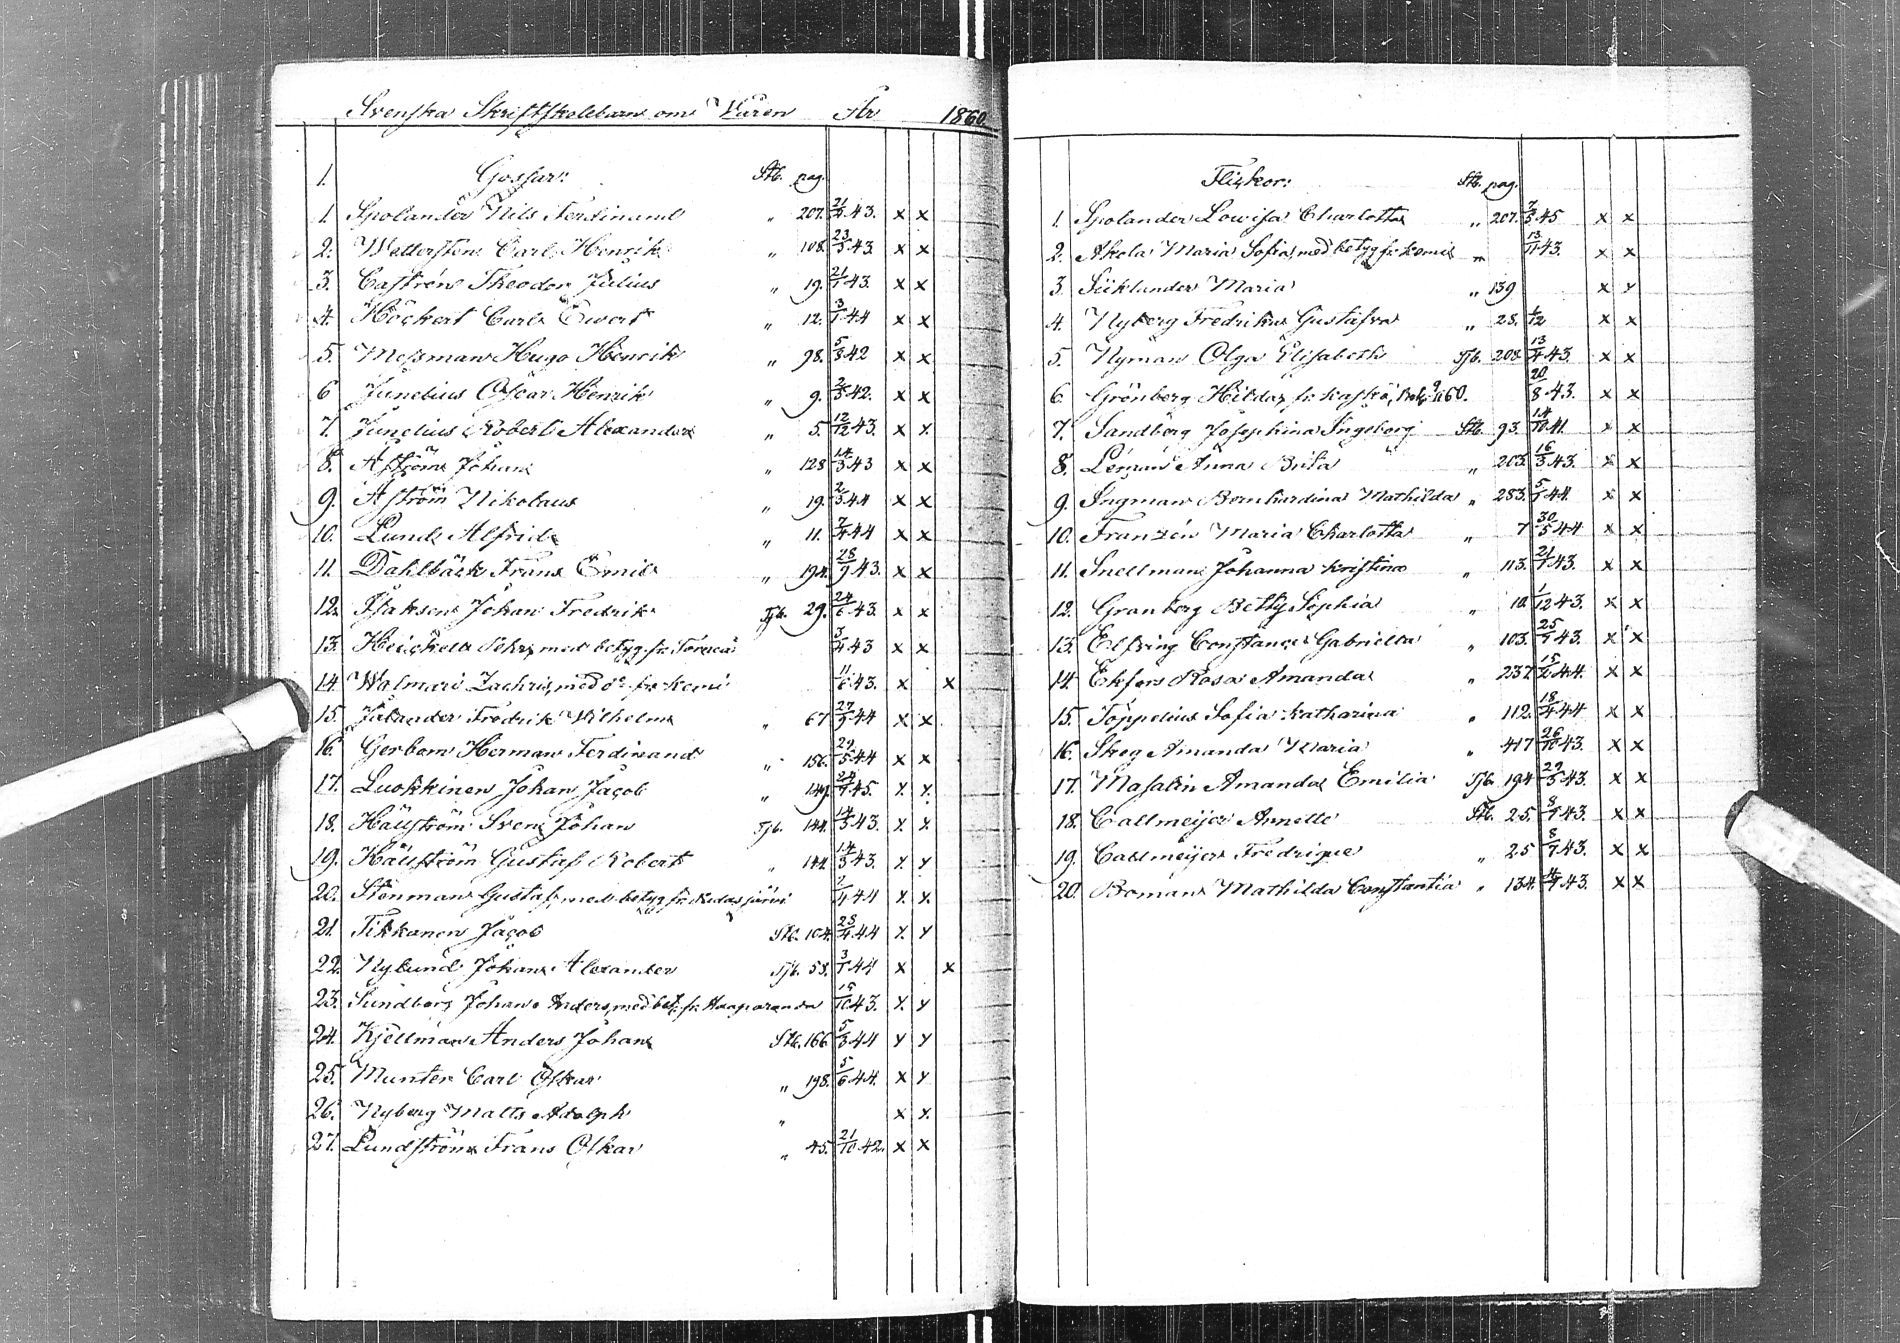 Svenska Skriftskolebarn om Våren År 1860.
1. Gossar: Stb. pag.
1. Spolander Nils Ferdinand " 207. 21/4 43. x x
2. Wetterstén Carl Henrik " 108. 23/3 43. x x
3. Castrén Theodor Julius " 19. 21/1 43. x x
4. Höckert Carl Evert " 12. 3/1 44 x x
5. Messman Hugo Henrik " 98. 5/3 42 x x
6 Junelius Oscar Henrik " 9. 2/3 42. x x
7. Junelius Robert Alexander " 5. 12/12 43. x x
8. Åström Johan " 128 14/3 43 x x
9. Åström Nikolaus " 19. 2/3 44 x x
10. Lund Alfrid " 11. 7/4 44 x x
11. Dahlbäck Frans Emil " 194. 28/9 43. x x
12. Isakson Johan Fredrik Tjb. 29. 24/6 43. x x
13. Heickell med betyg fr. Torneå 3/4 43 x x
14. Walmari Zachris, med do fr. Kemi 11/6 43. x x
15. Julander Fredrik Wilhelm " 67 27/3 44 x x
16. Gerbom Herman Ferdinand " 156. 29/5 44 x x
17. Luokkinen Johan Jacob " 149. 24/4 45. x x
18. Hällström Sven Johan Tjb. 144. 14/3 43. x x
19. Hällström Gustaf Robert " 144. 14/3 43. x x
20. Stenman Gustaf, med betyg fr. Pudasjärvi 2/4 44 x x
21. Tikkanen Jacob Stb. 104. 28/4 44 x x
22. Nylund Johan Alexander Tjb. 53. 3/1 44 x x
23. Sundberg Johan Anders, med bet. fr. Haaparanda 15/10 43. x x
24. Kjellman Anders Johan Stb. 166 5/3 44 x x
25. Munter Carl Oskar " 198. 5/6 44. x x
26. Nyberg Matts Adolph " x x
27. Lundström Frans Oskar " 45. 21/10 42. x x
Flickor: Stb. pag.
1. Spolander Lowisa Charlotta " 207. 7/3 45 x x
2. Akola Maria Sofia, med betyg fr. Kemi " 13/11 43. x x
3. Maria " 139 x x
4. Nyberg Fredrika Gustafva " 28. 1/12 x x
5. Nyman Olga Elisabeth Tjb. 208. 13/4 43. x x
6 Grönberg Hilda, fr. Kaskö, 60. 20/8 43. x x
7. Sandberg Josephina Ingeborg Stb. 93. 14/10 41. x x
8. Léman Anna Brita " 203. 16/3 43. x x
9. Ingman Bernhardina Mathilda " 283. 5/1 44. x x
10. Franzén Maria Charlotta " 7 30/5 44 x x
11. Snellman Johanna Kristina " 113. 21/7 43. x x
12. Granberg Betty Sophia " 10. 1/12 43. x x
13. Elfving Constance Gabriella " 103. 25/9 43. x x
14. Ekfors Rosa Amanda " 237 15/2 44. x x
15. Toppelius Sofia Katharina " 112. 18/4 44 x x
16. Skog Amanda Maria " 417 26/10 43. x x
17. Masalin Amanda Emilia Tjb. 194 29/5 43. x x
18. Callmeijer Annette Stb. 25. 8/7 43. x x
19. Callmeijer Fredrique " 25 8/7 43. x x
20. Boman Mathilda Constantia " 134. 4/4 43. x x